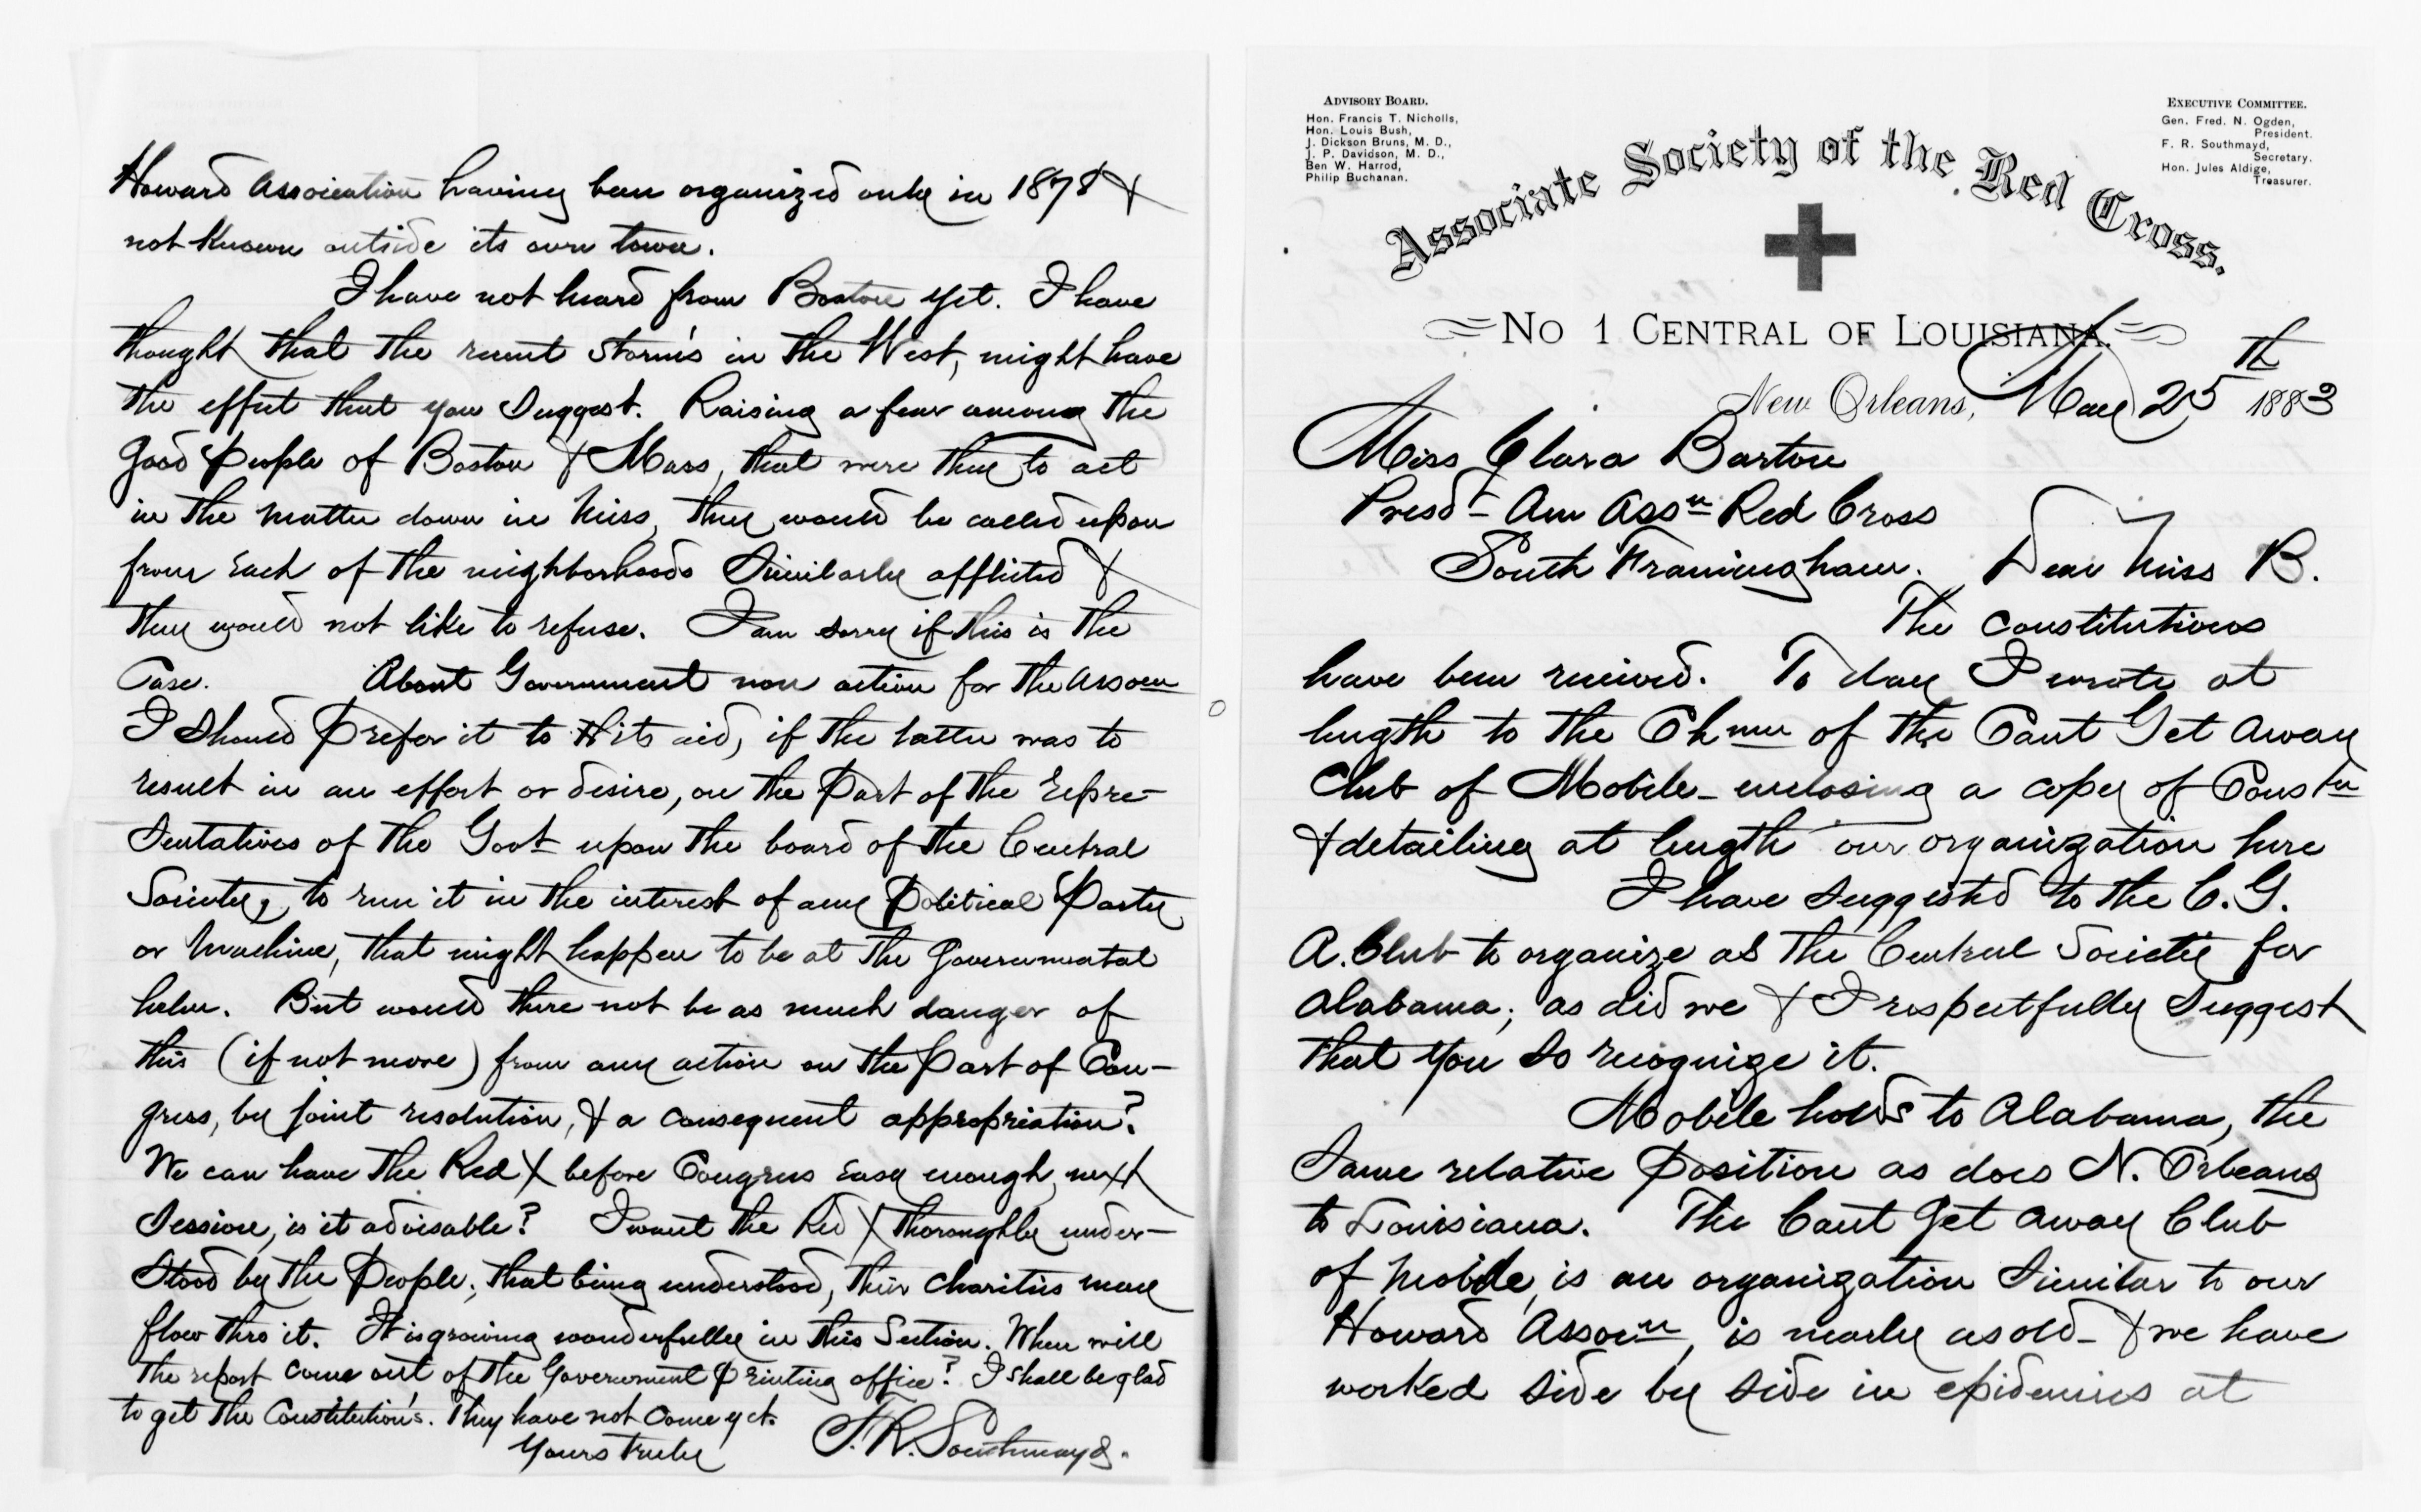 Howard Association having been organized only in 1878 &
not known outside its own town.
I have not heard from Boston yet. I have
thought that the recent storms in the West, might have
the effect that you suggest. Raising a fear among the
good people of Boston & Mass, that were they to act
in the matter down in Miss, they would be called upon
from each of the neighborhoods similarly afflicted &
they would not like to refuse. I am sorry if this is the
Case. About Government non action for the Assocn
I should prefer it to its aid, if the latter was to
result in an effort or desire, on the part of the repre-
sentatives of the Govt upon the board of the Central
Society, to run it in the interest of any Political Party
or Machine, that might happen to be at the Governmental
helm. But would there not be as much danger of
this (if not more) from any action on the part of Con-
gress, by joint resolution, & a consequent appropriation?
We can have the Red X before Congress easy enough, next
Session, is it advisable? I want the Red X thoroughly under-
stood by the People; that being understood, their charities may
flow thro it. It is growing wonderfully in this Section. When will
the report come out of the Government Printing office? I shall be glad
to get the Constitution's. They have not come yet.
Yours truly F. R. Southmayd.
ADVISORY BOARD.
Hon. Francis T. Nicholls,
Hon. Louis Bush,
J. Dickson Bruns, M. D.,
J. P. Davidson, M. D.,
Ben W. Harrod,
Philip Buchanan.
EXECUTIVE COMMITTEE.
Gen. Fred. N. Ogden,
President.
F. R. Southmayd,
Secretary.
Hon. Jules Aldige,
Treasurer.
Associate Society of the Red Cross.
No 1 CENTRAL OF LOUISIANA.
New Orleans, May 25th 1883
Miss Clara Barton
Presdt Am Assn Red Cross
South Framingham. Dear Miss B.
The Constitutions
have been received. To day I wrote at
length to the Chmn of the Cant Get Away
Club of Mobile - enclosing a copy of Constn
& detailing at length our organization here
I have suggested to the C. G.
A. Club to organize as the Central Society for
Alabama; as did we & I respectfully suggest
that you so recognize it.
Mobile holds to Alabama, the
same relative position as does N. Orleans
to Louisiana. The Cant Get Away Club
of Mobile, is an organization similar to our
Howard Assocn, is nearly as old - & we have
worked side by side in epidemics at